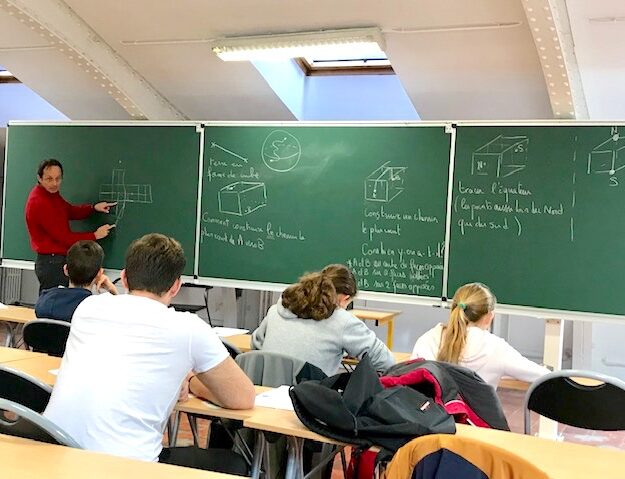 Terre en
forme de cube
Comment construire le chemin le
plus court de A vers B
Construire un chemin
le plus court
Combien y en a-t-il
A et B sur 2 faces opposées
N
S
tracer l'équateur
(les points aussi loin du Nord
que du sud)
N
S